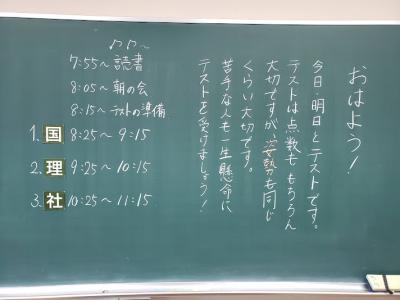 おはよう!
今日・明日とテストです。
テストは点数ももちろん
大切ですが、姿勢も同じ
くらい大切です。
苦手な人も一生懸命に
テストを受けましょう!
7:55~読書
8:05~朝の会
8:15~テストの準備
1. 国 8:25~9:15
2. 理 9:25~10:15
3. 社 10:25~11:15